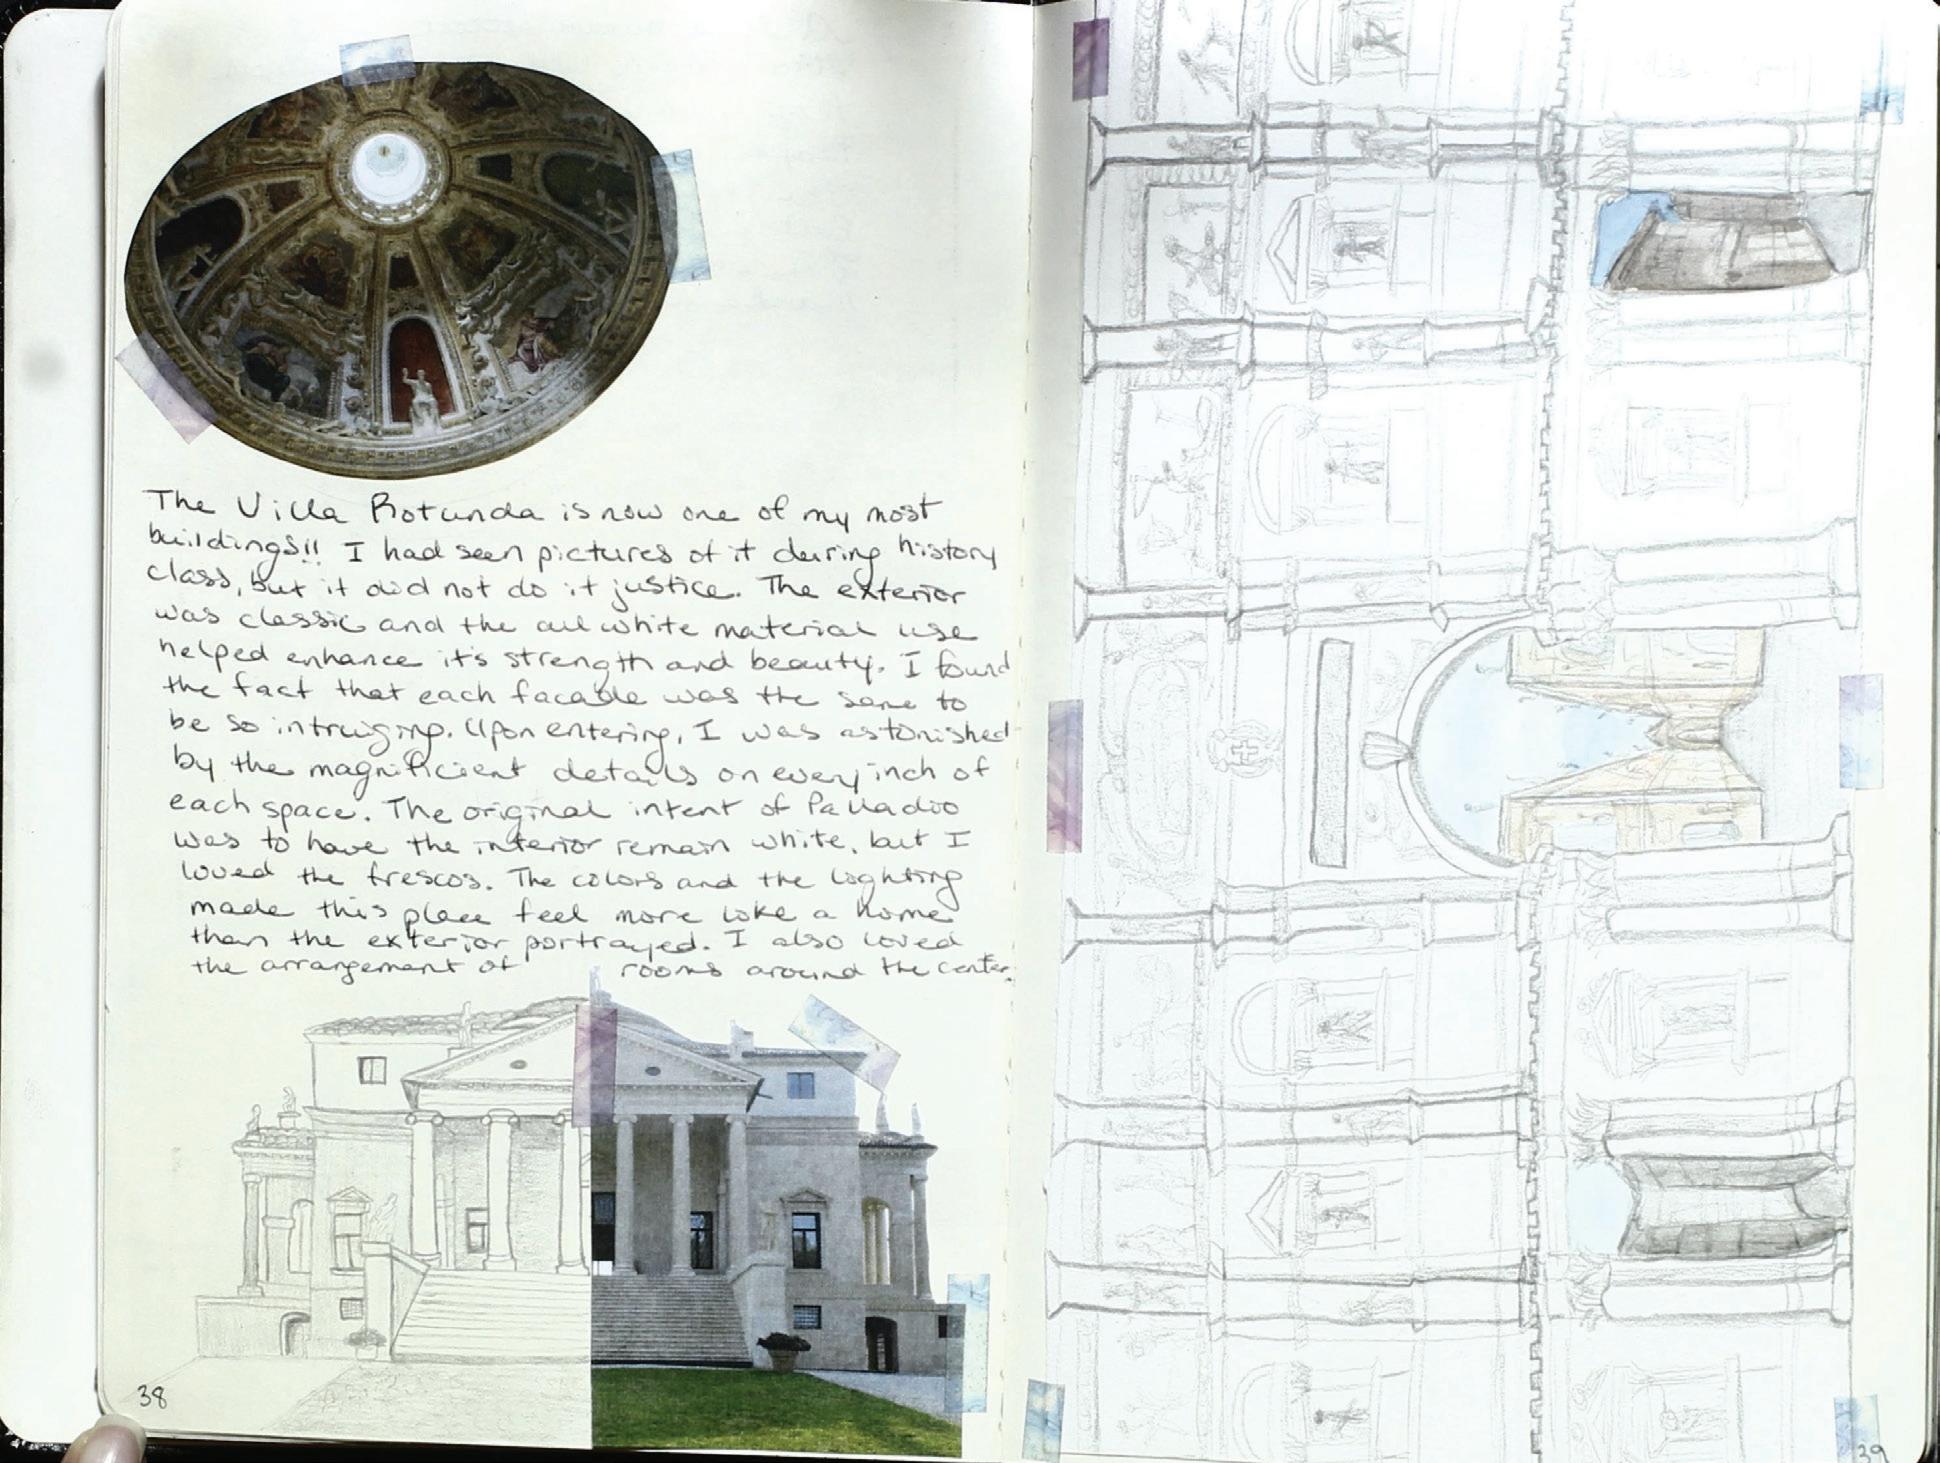 The Villa Rotunda is now one of my most
buildings!! I had seen pictures of it during history
class, but it did not do it justice. The exterior
was classic and the all white material use
helped enhance it's strength and beauty. I found
the fact that each facade was the same to
be so intruiging. Upon entering, I was astonished
by the magnificient details on every inch of
each space. The original intent of Palladio
was to have the interior remain white, but I
loved the frescos. The colors and the lighting
made this place feel more like a home
than the exterior portrayed. I also loved
the arrangement of rooms around the center.
38
39